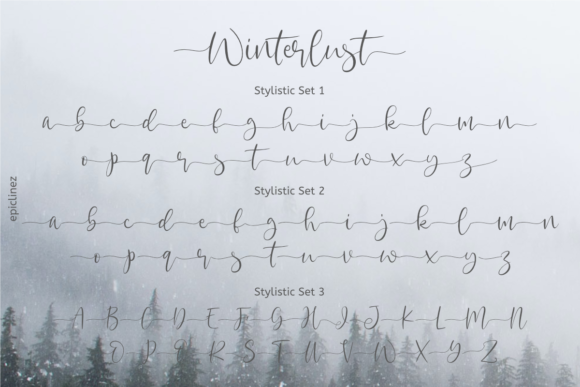 Winterlust
Stylistic Set 1
a b c d e f g h i j k l m n
o p q r s t u v w x y z
epiclinez
Stylistic Set 2
a b c d e f g h i j k l m n
o p q r s t u v w x y z
Stylistic Set 3
A B C D E F G H I J K L M N
O P Q R S T U V W X Y Z